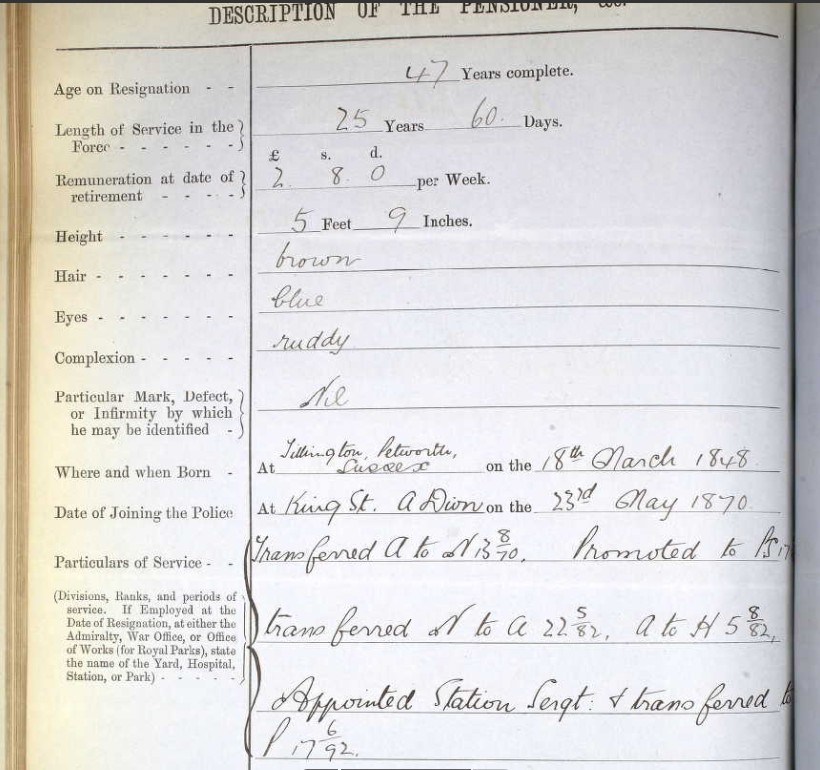 DESCRIPTION OF THE PENSIONER, &c.
Age on Resignation - - 47 Years complete.
Length of Service in the
Force - - - - - - 25 Years 60 Days.
£ s. d.
Remuneration at date of
retirement - - - - 2. 8. 0 per Week.
Height - - - - - - 5 Feet 9 Inches.
Hair - - - - - - - brown
Eyes - - - - - - - blue
Complexion - - - - - ruddy
Particular Mark, Defect,
or Infirmity by which
he may be identified - Nil
Where and when Born - At Tillington, Petworth,
Sussex on the 18th March 1848
Date of Joining the Police At King St. A Dion on the 23rd May 1870.
Particulars of Service - - Transferred A to N 13 8/70. Promoted to PS 17
(Divisions, Ranks, and periods of
service. If Employed at the
Date of Resignation, at either the
Admiralty, War Office, or Office
of Works (for Royal Parks), state
the name of the Yard, Hospital,
Station, or Park) - - - - -
transferred N to A 22 5/82, A to H 5 8/82,
Appointed Station Sergt: & transferred to
P 17 6/92.